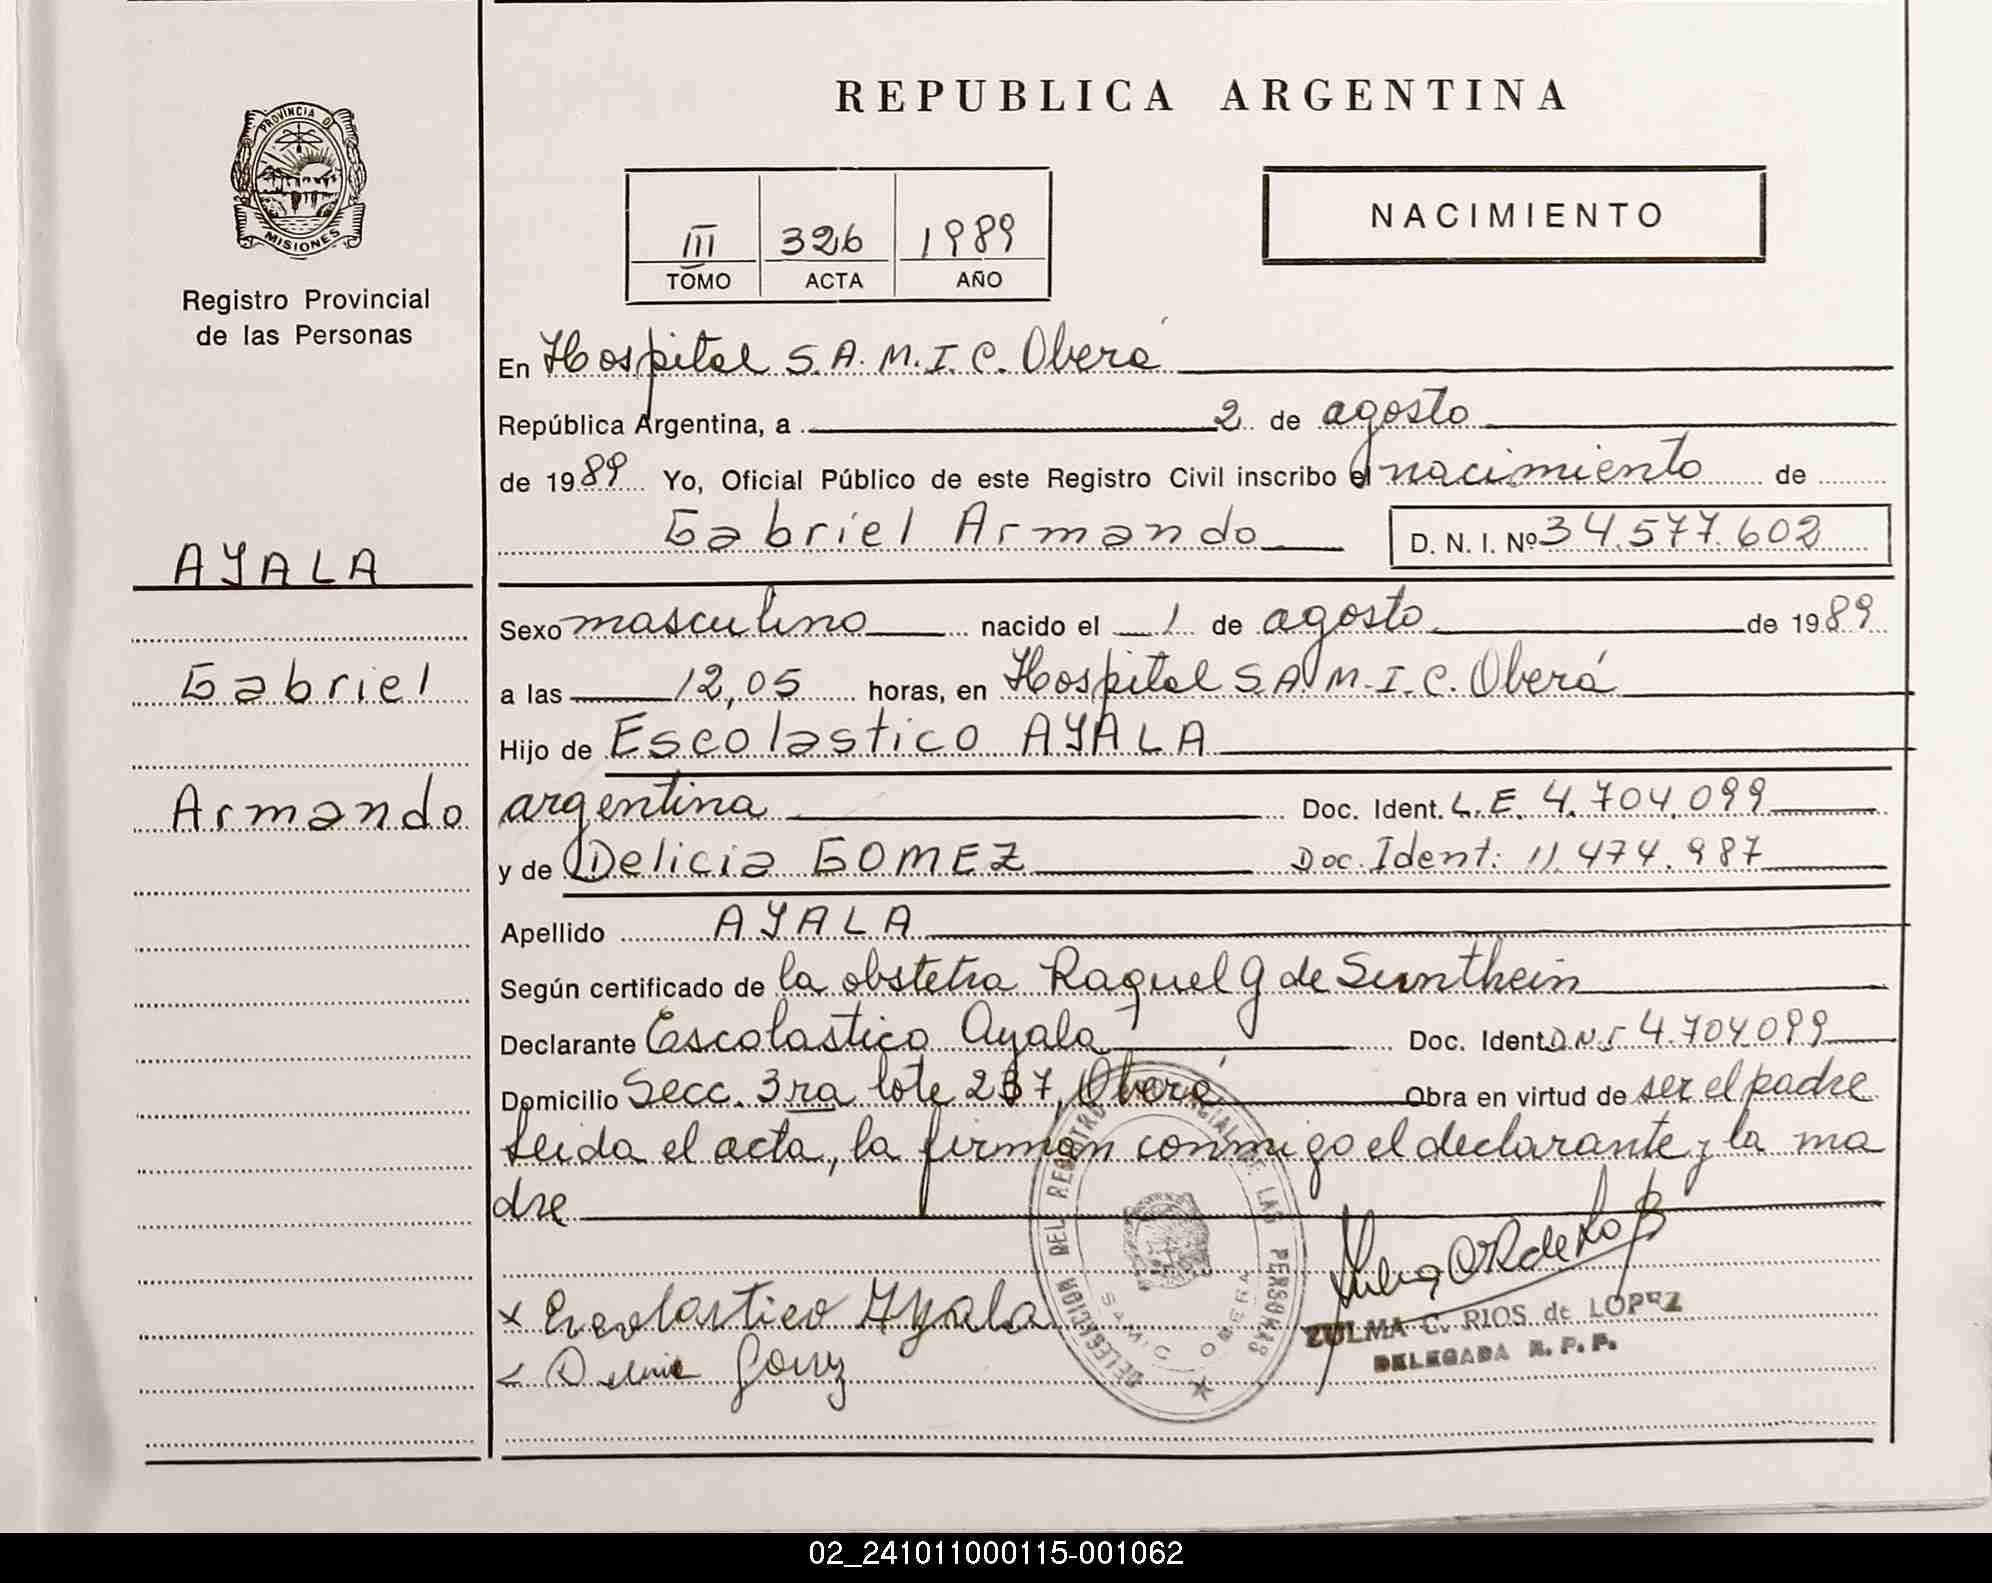 REPUBLICA ARGENTINA
PROVINCIA D
MISIONES
Registro Provincial
de las Personas
III 326 1989
TOMO ACTA AÑO
NACIMIENTO
En Hospital S.A.M.I.C. Oberá
República Argentina, a 2 de agosto
de 1989 Yo, Oficial Público de este Registro Civil inscribo el nacimiento de
Gabriel Armando D. N. I. Nº 34.577.602
AYALA
Gabriel
Armando
Sexo masculino nacido el 1 de agosto de 1989
a las 12,05 horas, en Hospital S.A.M.I.C. Oberá
Hijo de Escolastico AYALA
argentina Doc. Ident. L.E. 4.704.099
y de Delicia GOMEZ Doc. Ident: 11.474.987
Apellido AYALA
Según certificado de la obstetra Raquel G de
Declarante Escolastico Ayala Doc. Ident DNI 4.704099
Domicilio Secc. 3ra lote 237, Oberá Obra en virtud de ser el padre
Leida el acta, la firman conmigo el declarante y la ma
dre
Escolastico Ayala
DELEGACION DEL REGISTRO PROVINCIAL DE LAS PERSONAS
SAMIC OBERA
ZULMA C. RIOS de LOPEZ
DELEGADA R. P. P.
02_241011000115-001062